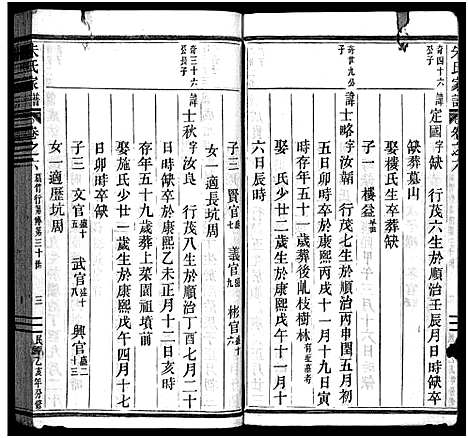 朱氏家譜 卷之六
奇四十六公長子
諱定國字缺 行茂六生於順治壬辰月日缺卒
缺葬墓山
娶樓氏生卒葬缺
子一 樓益
奇世九公
諱士略字汝朝 行茂七生於順治丙申閏五月初
五日卯時卒於康熙丙戌十一月十九日寅
時存年五十一歲葬後亂枝樹林
娶 氏少廿二歲生於康熙戊午十一月十
六日辰時
子三 賢官七 義官九 彬官十
女一適長坑周
奇三十六公長子
諱士秋字汝良 行茂八生於順治丁酉七月二十
日時缺卒於康熙乙未正月十二日亥時
存年五十九歲葬上菜園祖墳前
娶施氏少廿一歲生於康熙戊午四月十七
日卯時卒缺
子三 文官五 武官 興官十三
女一適歷坑周
朱氏家譜 卷之六 三 民國乙亥年分修